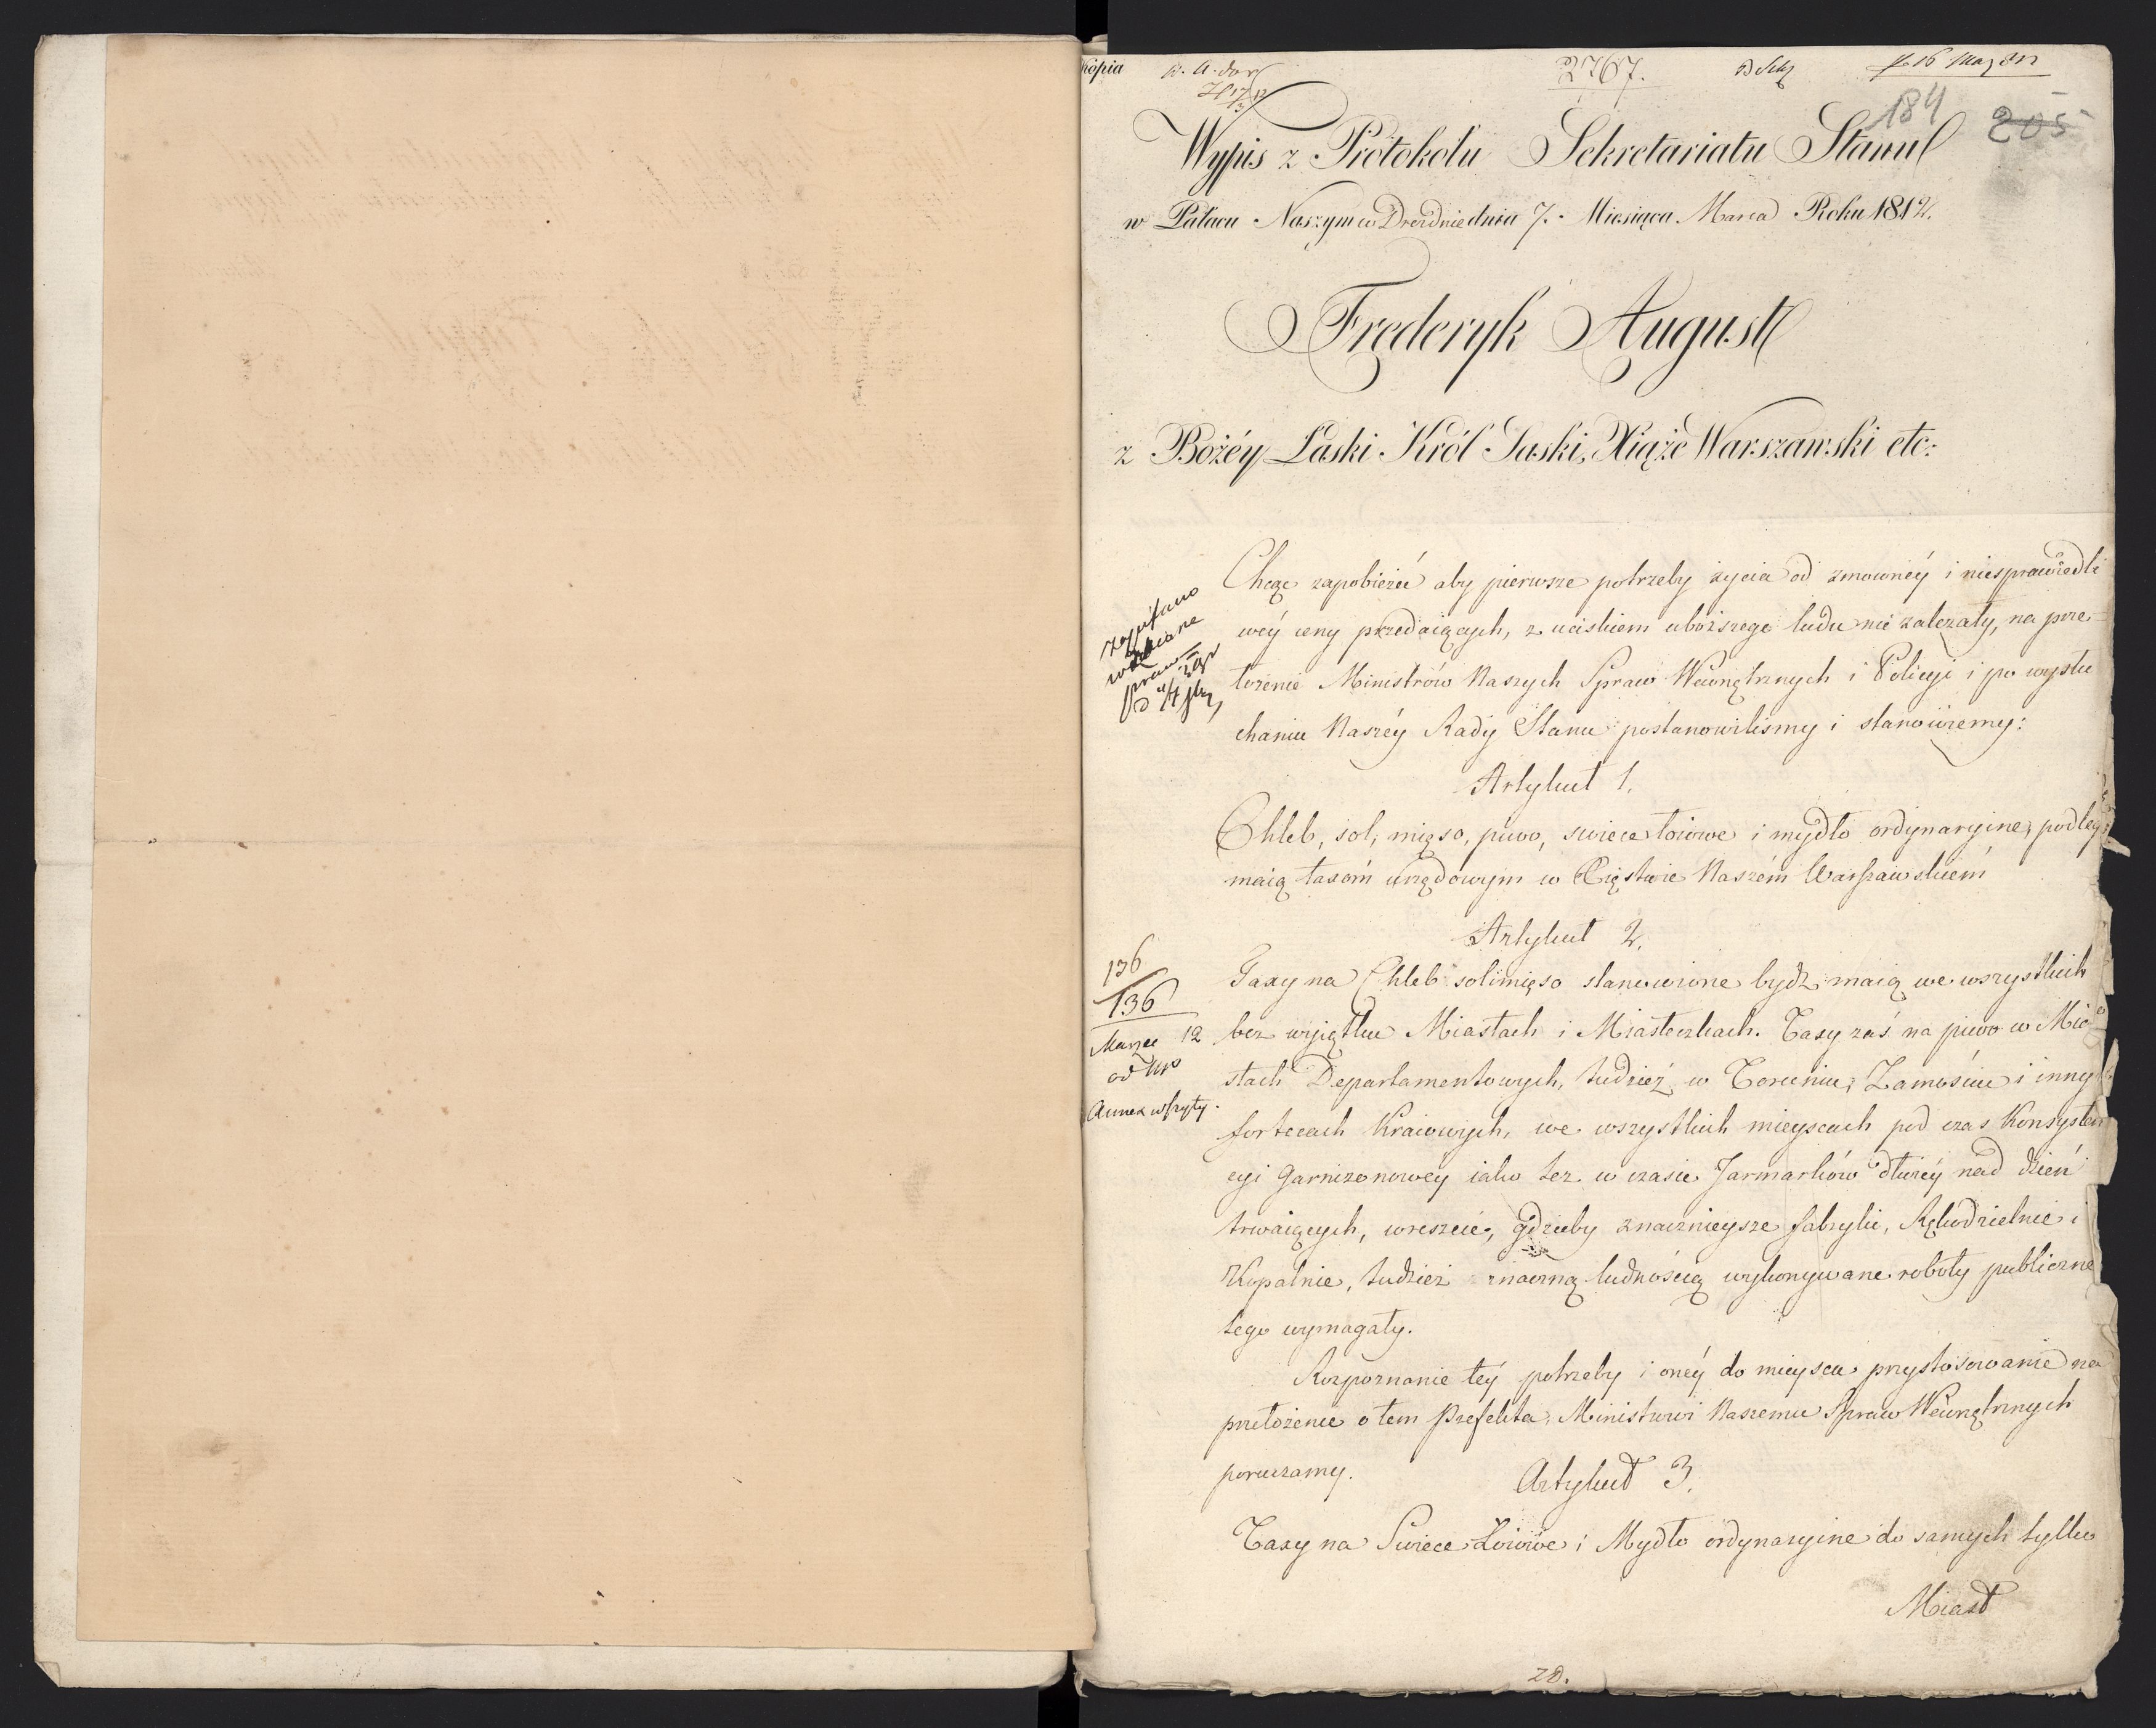 Kopia
2767.
184 205
Wypis z Protokołu Sekretariatu Stanu
w Pałacu Naszym w Dreźdnie dnia 7. Miesiąca Marca Roku 1812.
Frederyk August
z Bożéy Łaski Król Saski, Xiąże Warszawski etc:
Chcąc zapobieżéć aby pierwsze potrzeby życia od zmownéy i niesprawiedli
wéy ceny przedaiących, z uciskiem uboższego ludu nie zależały, na prze-
łożenie Ministrów Naszych Spraw Wewnętrznych i Policyi i po wysłu
chaniu Naszéy Rady Stanu postanowiliśmy i stanowiemy:
Artykuł 1.
Chleb, sol, mięso, piwo, swiece łoiowe i mydło ordynaryine, podleg
maią taxóm urzędowym w Xięstwie Naszém Warszawskiém
Artykuł 2.
Taxy na Chleb sol i mięso stanowione bydź maią we wszystkich
bez wyiątku Miastach i Miasteczkach. Taxy zaś na piwo w Mia
stach Departamentowych, tudzież w Toruniu, Zamościu i innych
fortecach Kraiowych, we wszystkich mieyscach pod czas Konsysten
cyi Garnizonowey iako też w czasie Jarmarków dłużéy nad dzień
trwaiących, wreszcie, gdzieby znacznieysze fabryki, Rękodzielnie i
Kopalnie, tudzież znaczną ludnością wykonywane roboty publiczne
tego wymagały.
Rozpoznanie téy potrzeby i onéy do mieysca przystosowanie na
przełożenie o tem Prefekta, Ministrowi Naszemu Spraw Wewnętrznych
poruczamy.
Artykuł 3.
Taxy na Swiece Łoiowe i Mydło ordynaryine do samych tylko
Miast
136
136
Marzec 12
Annex wszyty.